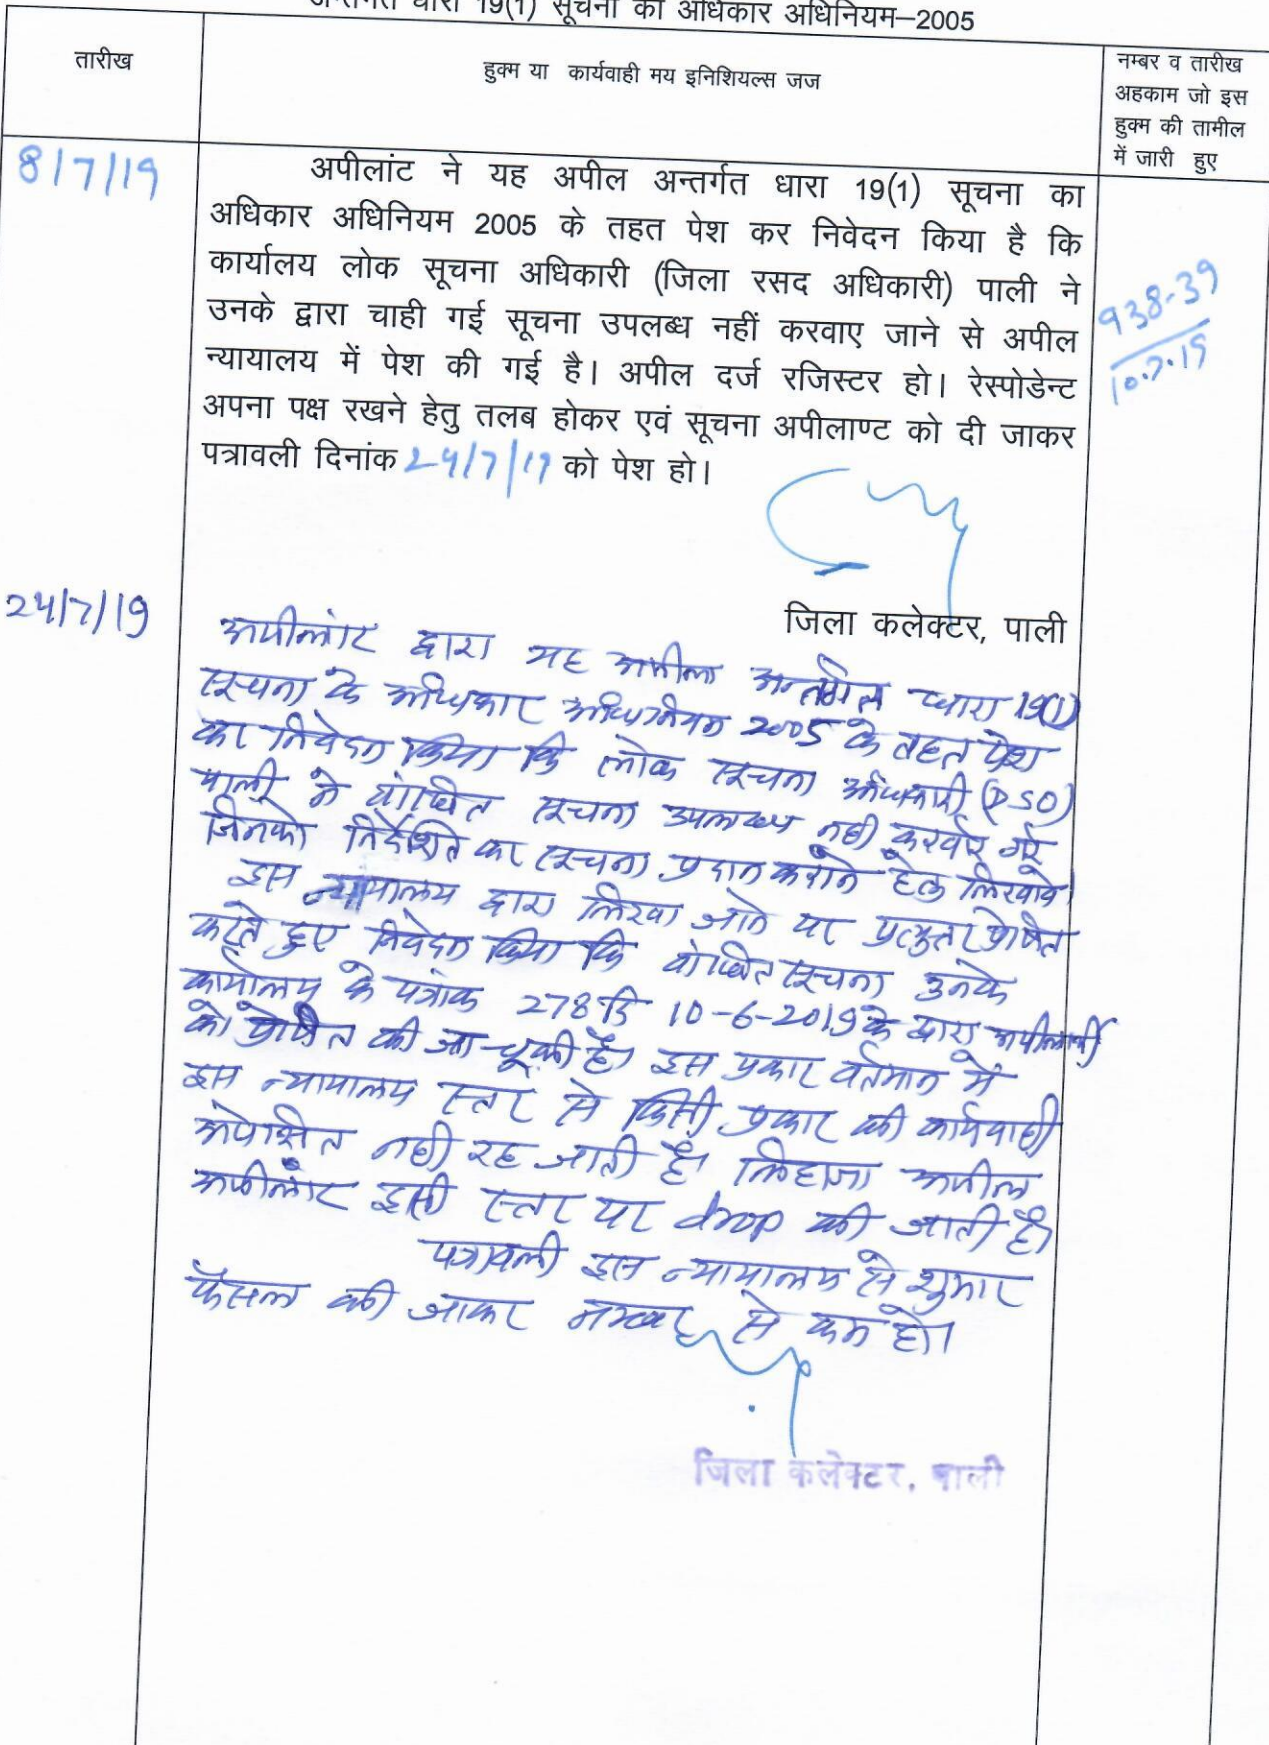 अन्तर्गत धारा 19(1) सूचना का अधिकार अधिनियम–2005
तारीख
हुक्म या कार्यवाही मय इनिशियल्स जज
नम्बर व तारीख
अहकाम जो इस
हुक्म की तामील
में जारी हुए
8/7/19
अपीलांट ने यह अपील अन्तर्गत धारा 19(1) सूचना का
अधिकार अधिनियम 2005 के तहत पेश कर निवेदन किया है कि
कार्यालय लोक सूचना अधिकारी (जिला रसद अधिकारी) पाली ने
उनके द्वारा चाही गई सूचना उपलब्ध नहीं करवाए जाने से अपील
न्यायालय में पेश की गई है। अपील दर्ज रजिस्टर हो। रेस्पोडेन्ट
अपना पक्ष रखने हेतु तलब होकर एवं सूचना अपीलाण्ट को दी जाकर
पत्रावली दिनांक 24/7/19 को पेश हो।
938-39
10.7.19
जिला कलेक्टर, पाली
24/7/19
अपीलांट द्वारा यह अपील अन्तर्गत धारा 19(1)
सूचना के अधिकार अधिनियम 2005 के तहत पेश
कर निवेदन किया कि लोक सूचना अधिकारी (DSO)
पाली ने वांछित सूचना उपलब्ध नहीं करवाई गई
जिनको निर्देशित कर सूचना प्रदान कराने हेतु लिखावे।
इस न्यायालय द्वारा लिखा जाने पर प्रत्युत्तर प्रेषित
करते हुए निवेदन किया कि वांछित सूचना उनके
कार्यालय के पत्रांक 278 दि 10-6-2019 के द्वारा अपीलार्थी
को प्रेषित की जा चूकी है। इस प्रकार वर्तमान में
इस न्यायालय स्तर से किसी प्रकार की कार्यवाही
अपेक्षित नहीं रह जाती है। लिहाजा अपील
अपीलांट इसी स्तर पर drop की जाती है।
पत्रावली इस न्यायालय से शुमार
फैसल की जाकर नम्बर से कम हो।
जिला कलेक्टर, पाली